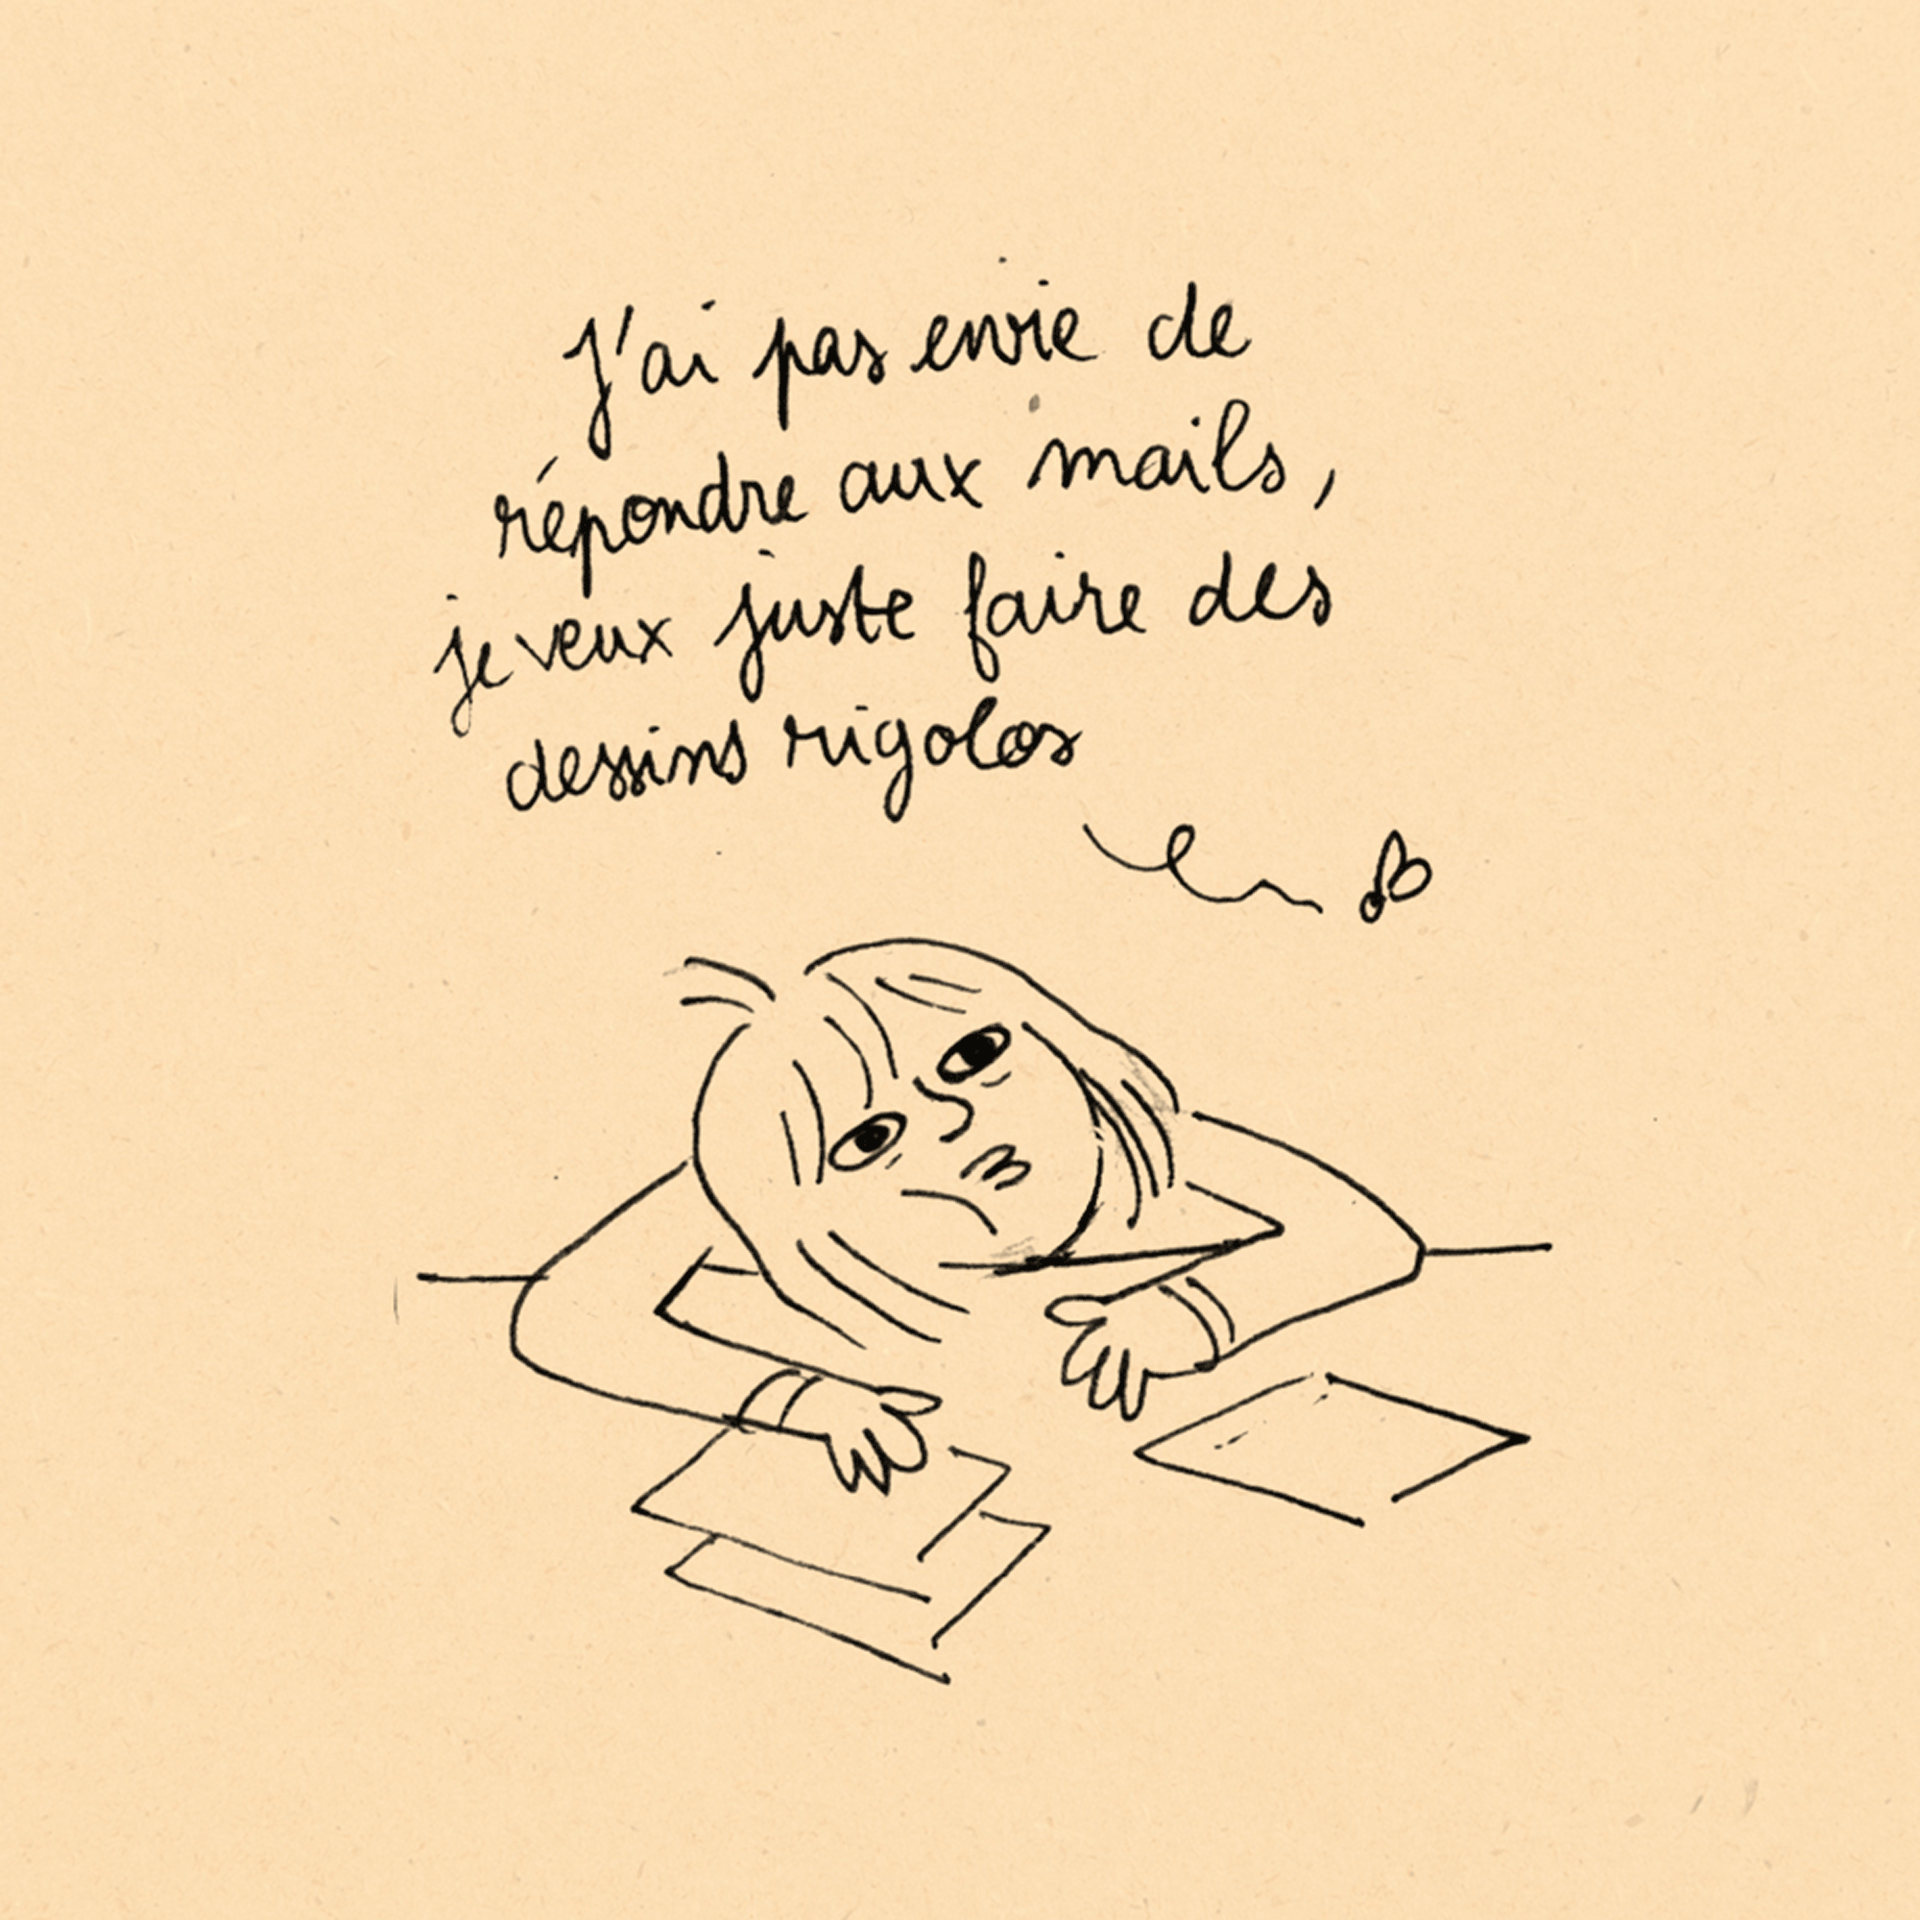 J'ai pas envie de
répondre aux mails,
je veux juste faire des
dessins rigolos